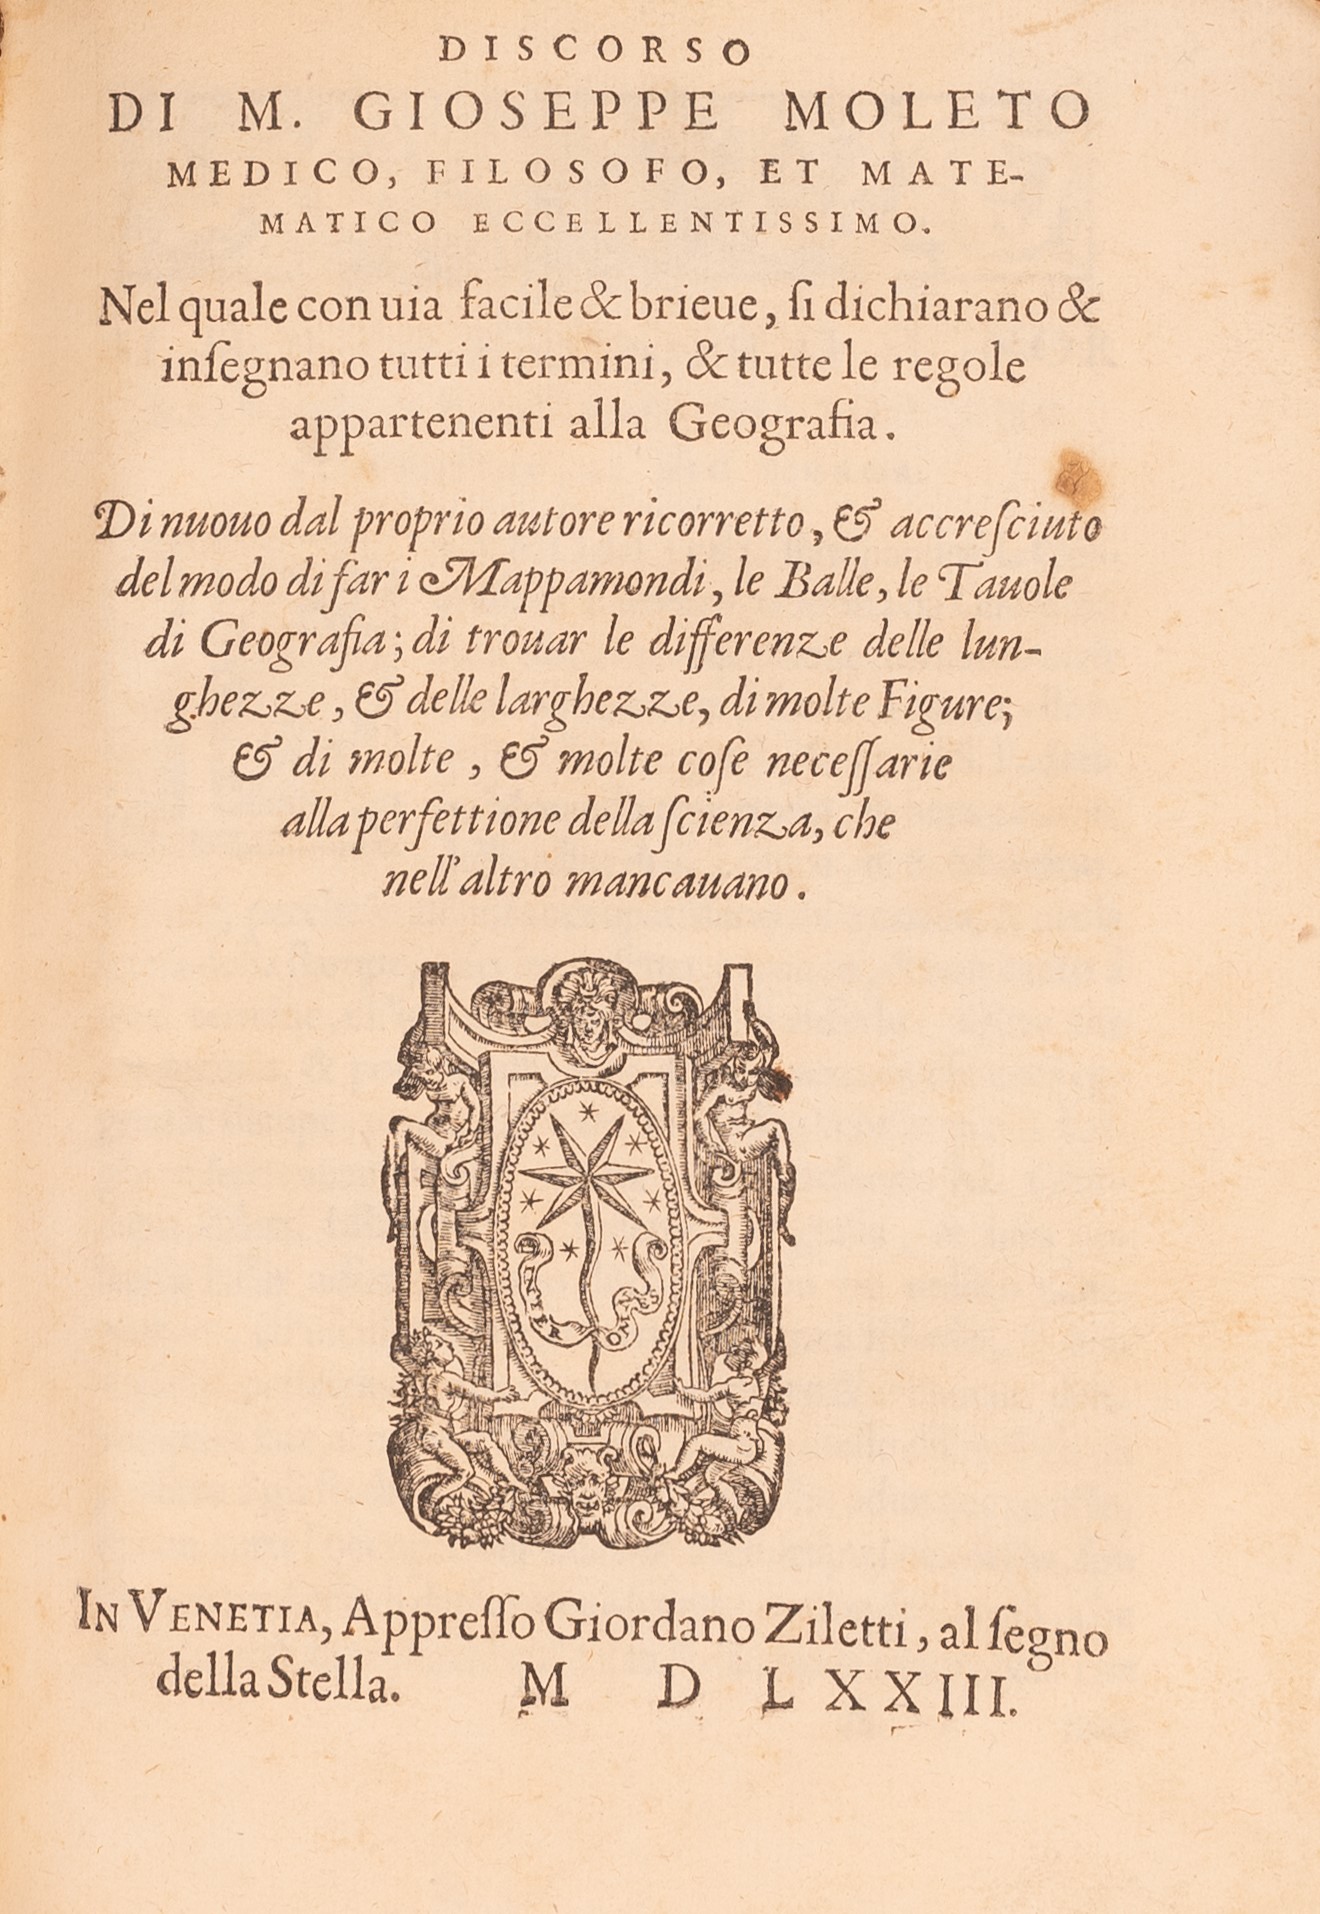 DISCORSO
DI M. GIOSEPPE MOLETO
MEDICO, FILOSOFO, ET MATE-
MATICO ECCELLENTISSIMO.
Nel quale con uia facile & brieue, ſi dichiarano &
inſegnano tutti i termini, & tutte le regole
appartenenti alla Geografia.
Di nuouo dal proprio autore ricorretto, & accreſciuto
del modo di far i Mappamondi, le Balle, le Tauole
di Geografia; di trouar le differenze delle lun-
ghezze, & delle larghezze, di molte Figure;
& di molte, & molte coſe neceſſarie
alla perfettione della ſcienza, che
nell'altro mancauano.
INTER OMNES
IN VENETIA, Appreſſo Giordano Ziletti, al ſegno
della Stella. M D LXXIII.